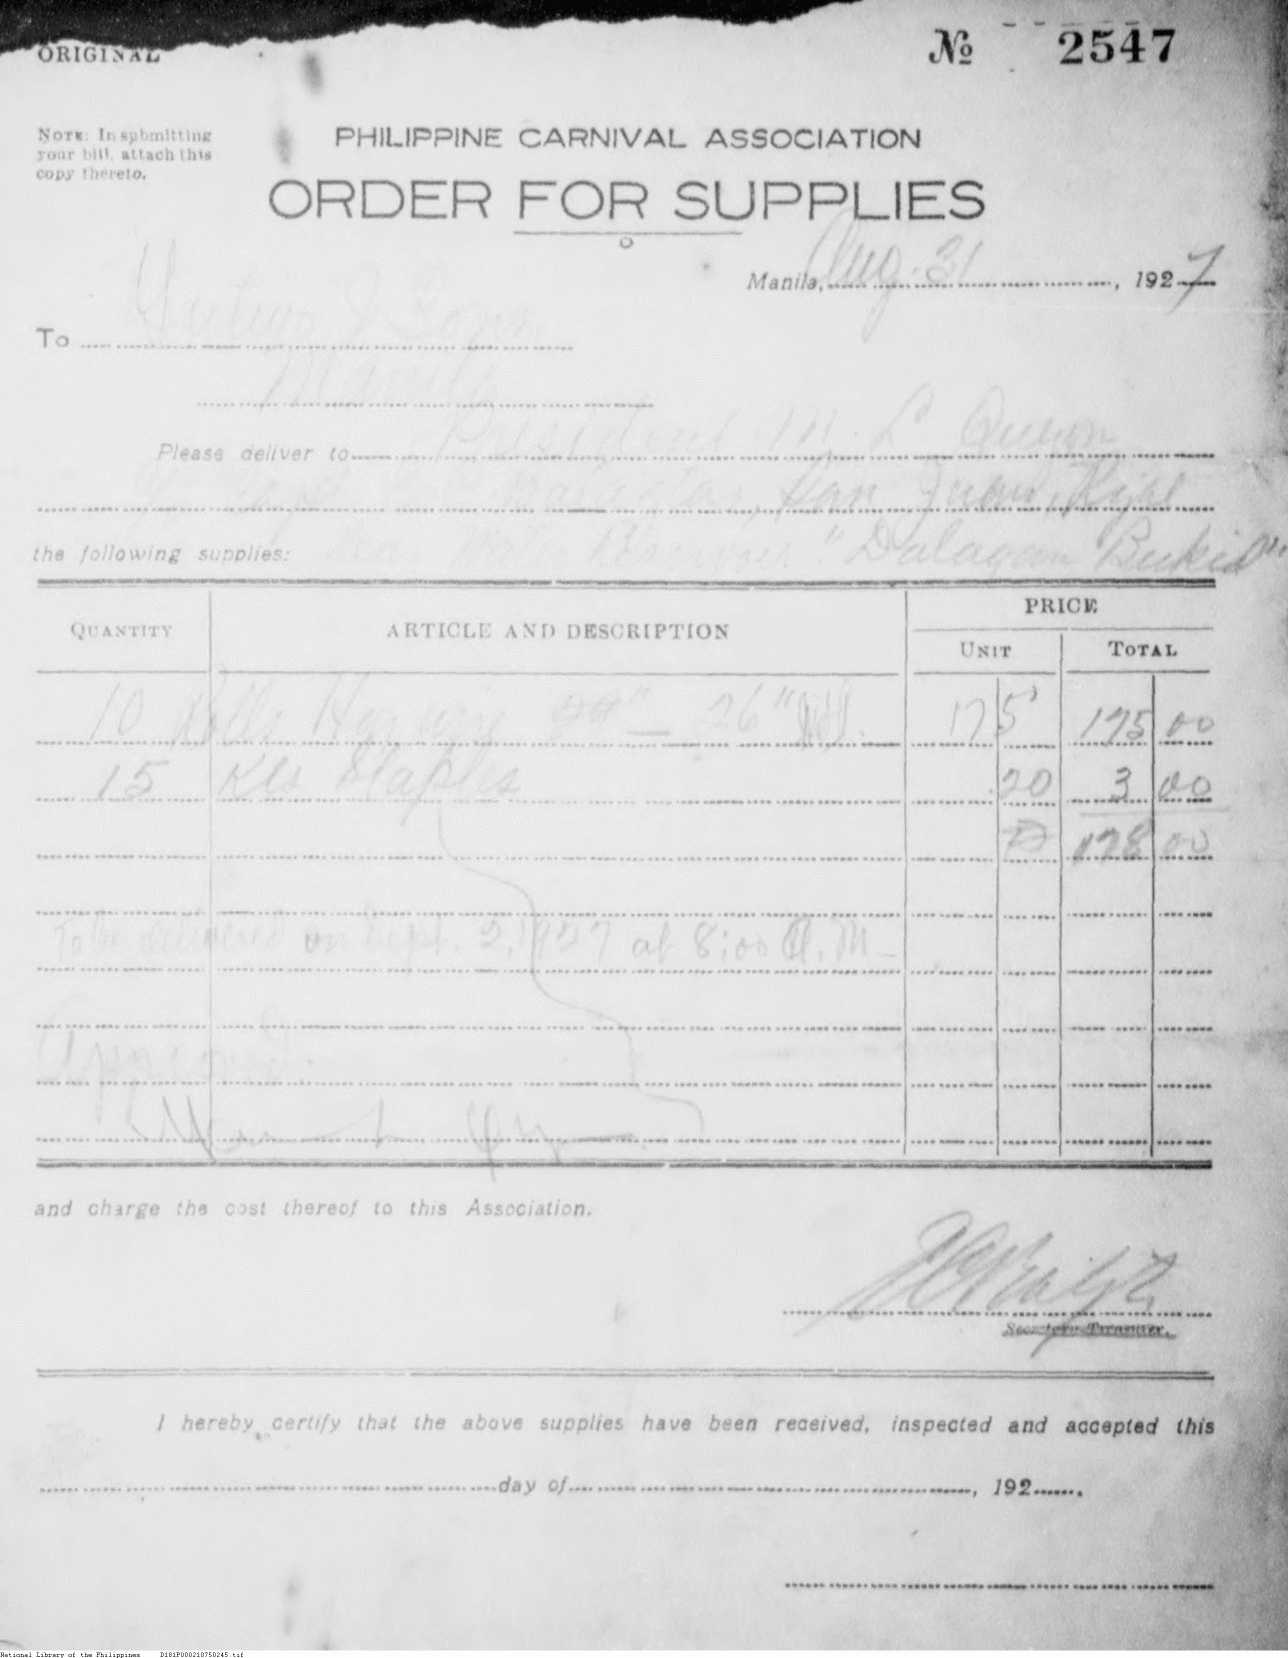 ORIGINAL
№ 2547
NOTE: In submitting
your bill, attach this
copy thereto.
PHILIPPINE CARNIVAL ASSOCIATION
ORDER FOR SUPPLIES
Manila, Aug. 31, 1927
To
Manila
Please deliver to President M. L. Quezon
San Juan, Rizal
the following supplies: "Dalagang Bukid"
QUANTITY ARTICLE AND DESCRIPTION PRICE
UNIT TOTAL
10 Rolls 26" 17 5 175 00
15 Kls Staples .20 3 00
178 00
To be delivered on Sept. 2, 1927 at 8:00 A.M.
Approved:
and charge the cost thereof to this Association.
Secretary-Treasurer.
I hereby certify that the above supplies have been received, inspected and accepted this
day of , 192 .
National Library of the Philippines D181P000210750245.tif